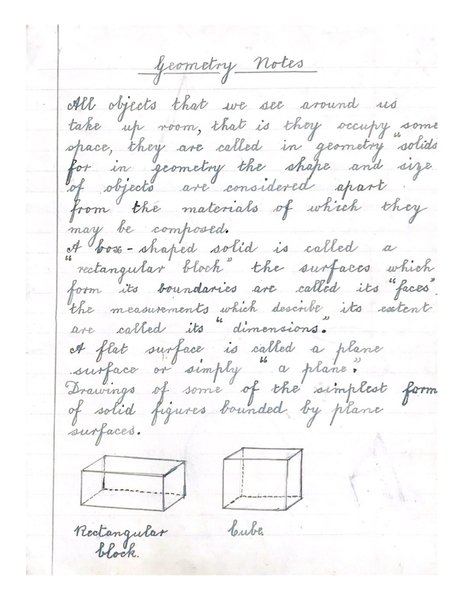 Geometry Notes
All objects that we see around us
take up room, that is they occupy some
space, they are called in geometry "solids
for in geometry the shape and size
of objects are considered apart
from the materials of which they
may be composed.
A box-shaped solid is called a
"rectangular block" the surfaces which
form its boundaries are called its "faces".
the measurements which describe its extent
are called its "dimensions."
A flat surface is called a plane
surface or simply "a plane".
Drawings of some of the simplest form
of solid figures bounded by plane
surfaces.
Rectangular
block.
Cube.